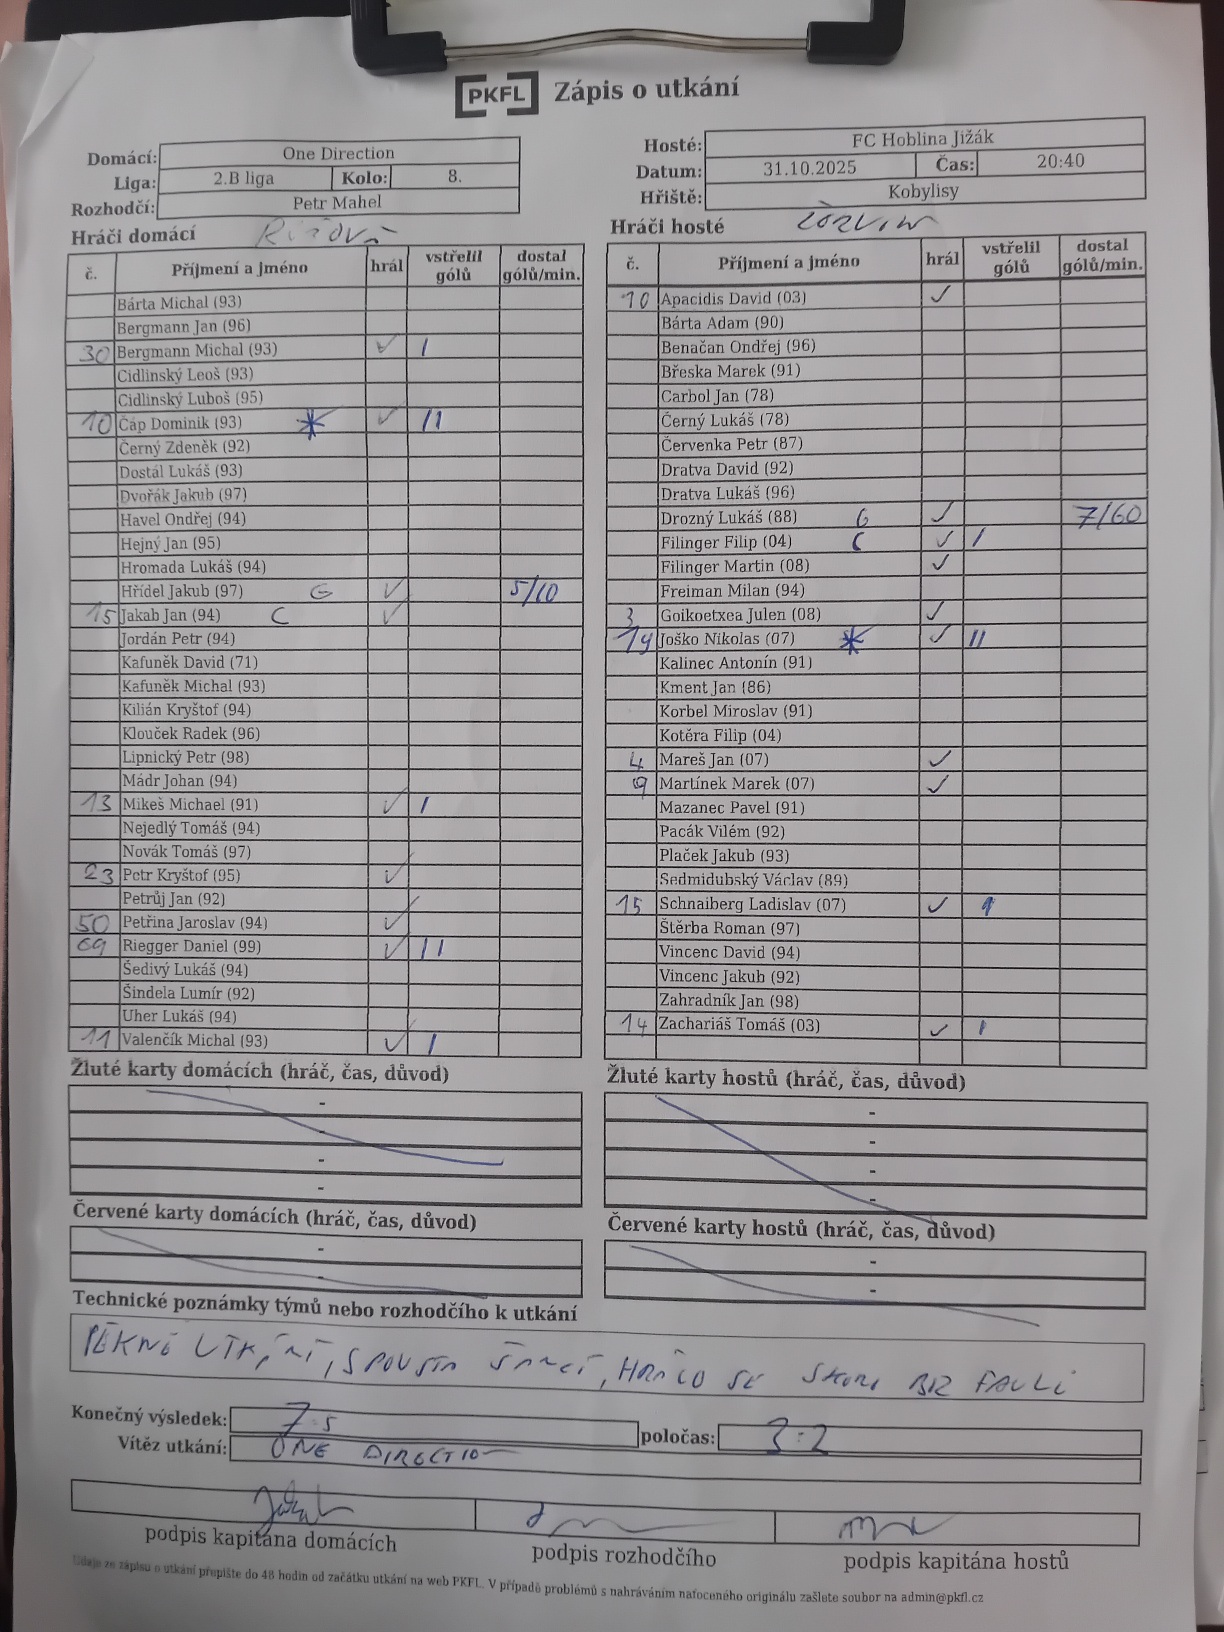 PKFL Zápis o utkání
Domácí: One Direction
Liga: 2.B liga Kolo: 8.
Rozhodčí: Petr Mahel
Hosté: FC Hoblina Jižák
Datum: 31.10.2025 Čas: 20:40
Hřiště: Kobylisy
Hráči domácí
č. Příjmení a jméno hrál vstřelil gólů dostal gólů/min.
Bárta Michal (93)
Bergmann Jan (96)
30 Bergmann Michal (93) ✓ I
Cidlinský Leoš (93)
Cidlinský Luboš (95)
10 Čáp Dominik (93) * ✓ II
Černý Zdeněk (92)
Dostál Lukáš (93)
Dvořák Jakub (97)
Havel Ondřej (94)
Hejný Jan (95)
Hromada Lukáš (94)
Hřídel Jakub (97) G ✓ 5/60
15 Jakab Jan (94) C ✓
Jordán Petr (94)
Kafuněk David (71)
Kafuněk Michal (93)
Kilián Kryštof (94)
Klouček Radek (96)
Lipnický Petr (98)
Mádr Johan (94)
13 Mikeš Michael (91) ✓ I
Nejedlý Tomáš (94)
Novák Tomáš (97)
23 Petr Kryštof (95) ✓
Petrůj Jan (92)
50 Petřina Jaroslav (94) ✓
69 Riegger Daniel (99) ✓ II
Šedivý Lukáš (94)
Šindela Lumír (92)
Uher Lukáš (94)
11 Valenčík Michal (93) ✓ I
Hráči hosté
č. Příjmení a jméno hrál vstřelil gólů dostal gólů/min.
10 Apacidis David (03) ✓
Bárta Adam (90)
Benačan Ondřej (96)
Břeska Marek (91)
Carbol Jan (78)
Černý Lukáš (78)
Červenka Petr (87)
Dratva David (92)
Dratva Lukáš (96)
Drozný Lukáš (88) G ✓ 7/60
Filinger Filip (04) C ✓ I
Filinger Martin (08) ✓
Freiman Milan (94)
3 Goikoetxea Julen (08) ✓
19 Joško Nikolas (07) * ✓ II
Kalinec Antonín (91)
Kment Jan (86)
Korbel Miroslav (91)
Kotěra Filip (04)
4 Mareš Jan (07) ✓
9 Martínek Marek (07) ✓
Mazanec Pavel (91)
Pacák Vilém (92)
Plaček Jakub (93)
Sedmidubský Václav (89)
15 Schnaiberg Ladislav (07) ✓ I
Štěrba Roman (97)
Vincenc David (94)
Vincenc Jakub (92)
Zahradník Jan (98)
14 Zachariáš Tomáš (03) ✓ I
Žluté karty domácích (hráč, čas, důvod)
-
-
-
-
Žluté karty hostů (hráč, čas, důvod)
-
-
-
-
Červené karty domácích (hráč, čas, důvod)
-
-
Červené karty hostů (hráč, čas, důvod)
-
-
Technické poznámky týmů nebo rozhodčího k utkání
PĚKNÉ UTKÁNÍ, SPOUSTA ŠANCÍ, HRÁLO SE SKORO BEZ FAULŮ
Konečný výsledek: 7:5 poločas: 3:2
Vítěz utkání: ONE DIRECTION
podpis kapitána domácích
podpis rozhodčího
podpis kapitána hostů
Údaje ze zápisu o utkání přepište do 48 hodin od začátku utkání na web PKFL. V případě problémů s nahráváním nafoceného originálu zašlete soubor na admin@pkfl.cz